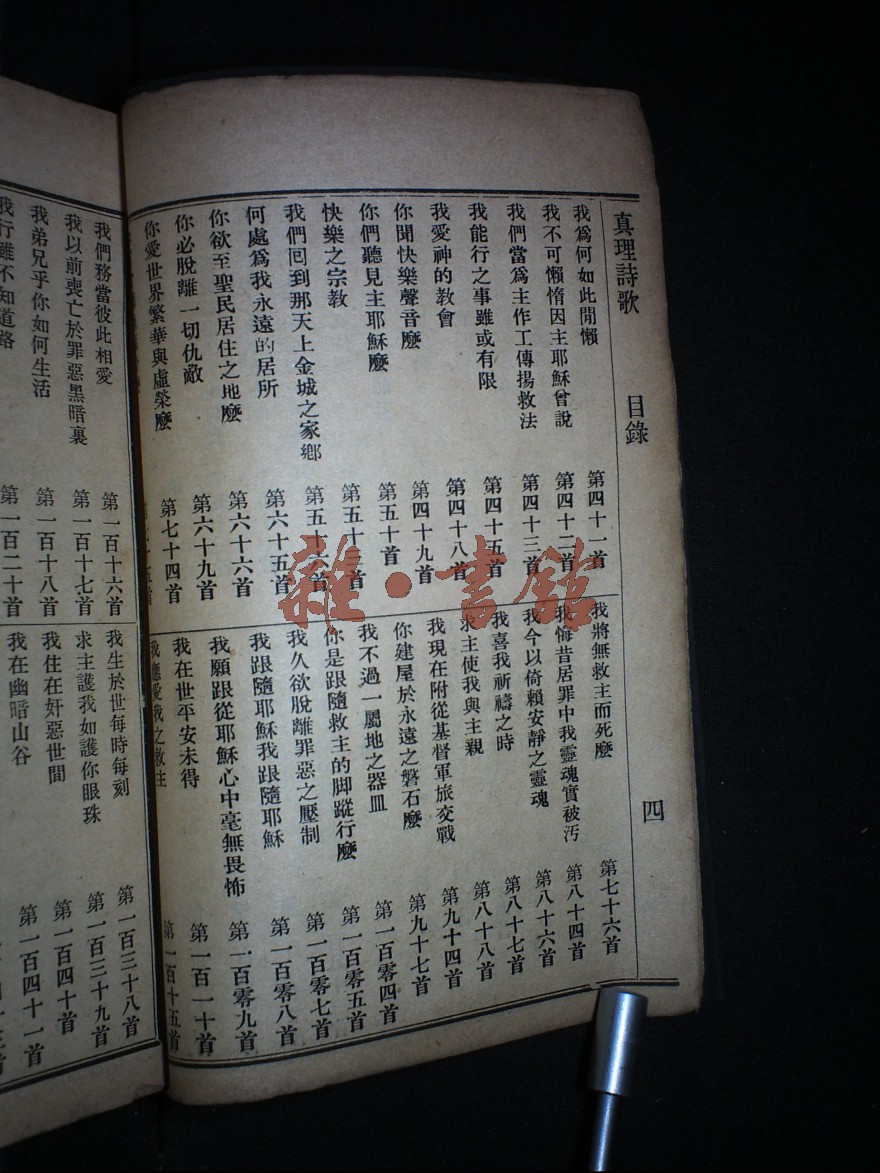 真理詩歌 目錄 四
我爲何如此閒懶 第四十一首
我不可懶惰因主耶穌曾說 第四十二首
我們當爲主作工傳揚救法 第四十三首
我能行之事雖或有限 第四十五首
我愛神的教會 第四十八首
你聞快樂聲音麽 第四十九首
你們聽見主耶穌麽 第五十首
快樂之宗教 第五十三首
我們回到那天上金城之家鄉 第五十六首
何處爲我永遠的居所 第六十五首
你欲至聖民居住之地麽 第六十六首
你必脫離一切仇敵 第六十九首
你愛世界繁華與虛榮麽 第七十四首
第七十五首
我將無救主而死麽 第七十六首
我悔昔居罪中我靈魂實被汚 第八十四首
我今以倚賴安靜之靈魂 第八十六首
我喜我祈禱之時 第八十七首
求主使我與主親 第八十八首
我現在附從基督軍旅交戰 第九十四首
你建屋於永遠之磐石麽 第九十七首
我不過一屬地之器皿 第一百零四首
你是跟隨救主的脚蹤行麽 第一百零五首
我久欲脫離罪惡之壓制 第一百零七首
我跟隨耶穌我跟隨耶穌 第一百零八首
我願跟從耶穌心中毫無畏怖 第一百零九首
我在世平安未得 第一百一十首
我應愛我之救主 第一百十五首
我們務當彼此相愛 第一百十六首
我以前喪亡於罪惡黑暗裏 第一百十七首
我弟兄乎你如何生活 第一百十八首
我行雖不知道路 第一百二十首
我生於世每時每刻 第一百三十八首
求主護我如護你眼珠 第一百三十九首
我住在奸惡世間 第一百四十首
我在幽暗山谷 第一百四十一首
雜·書館